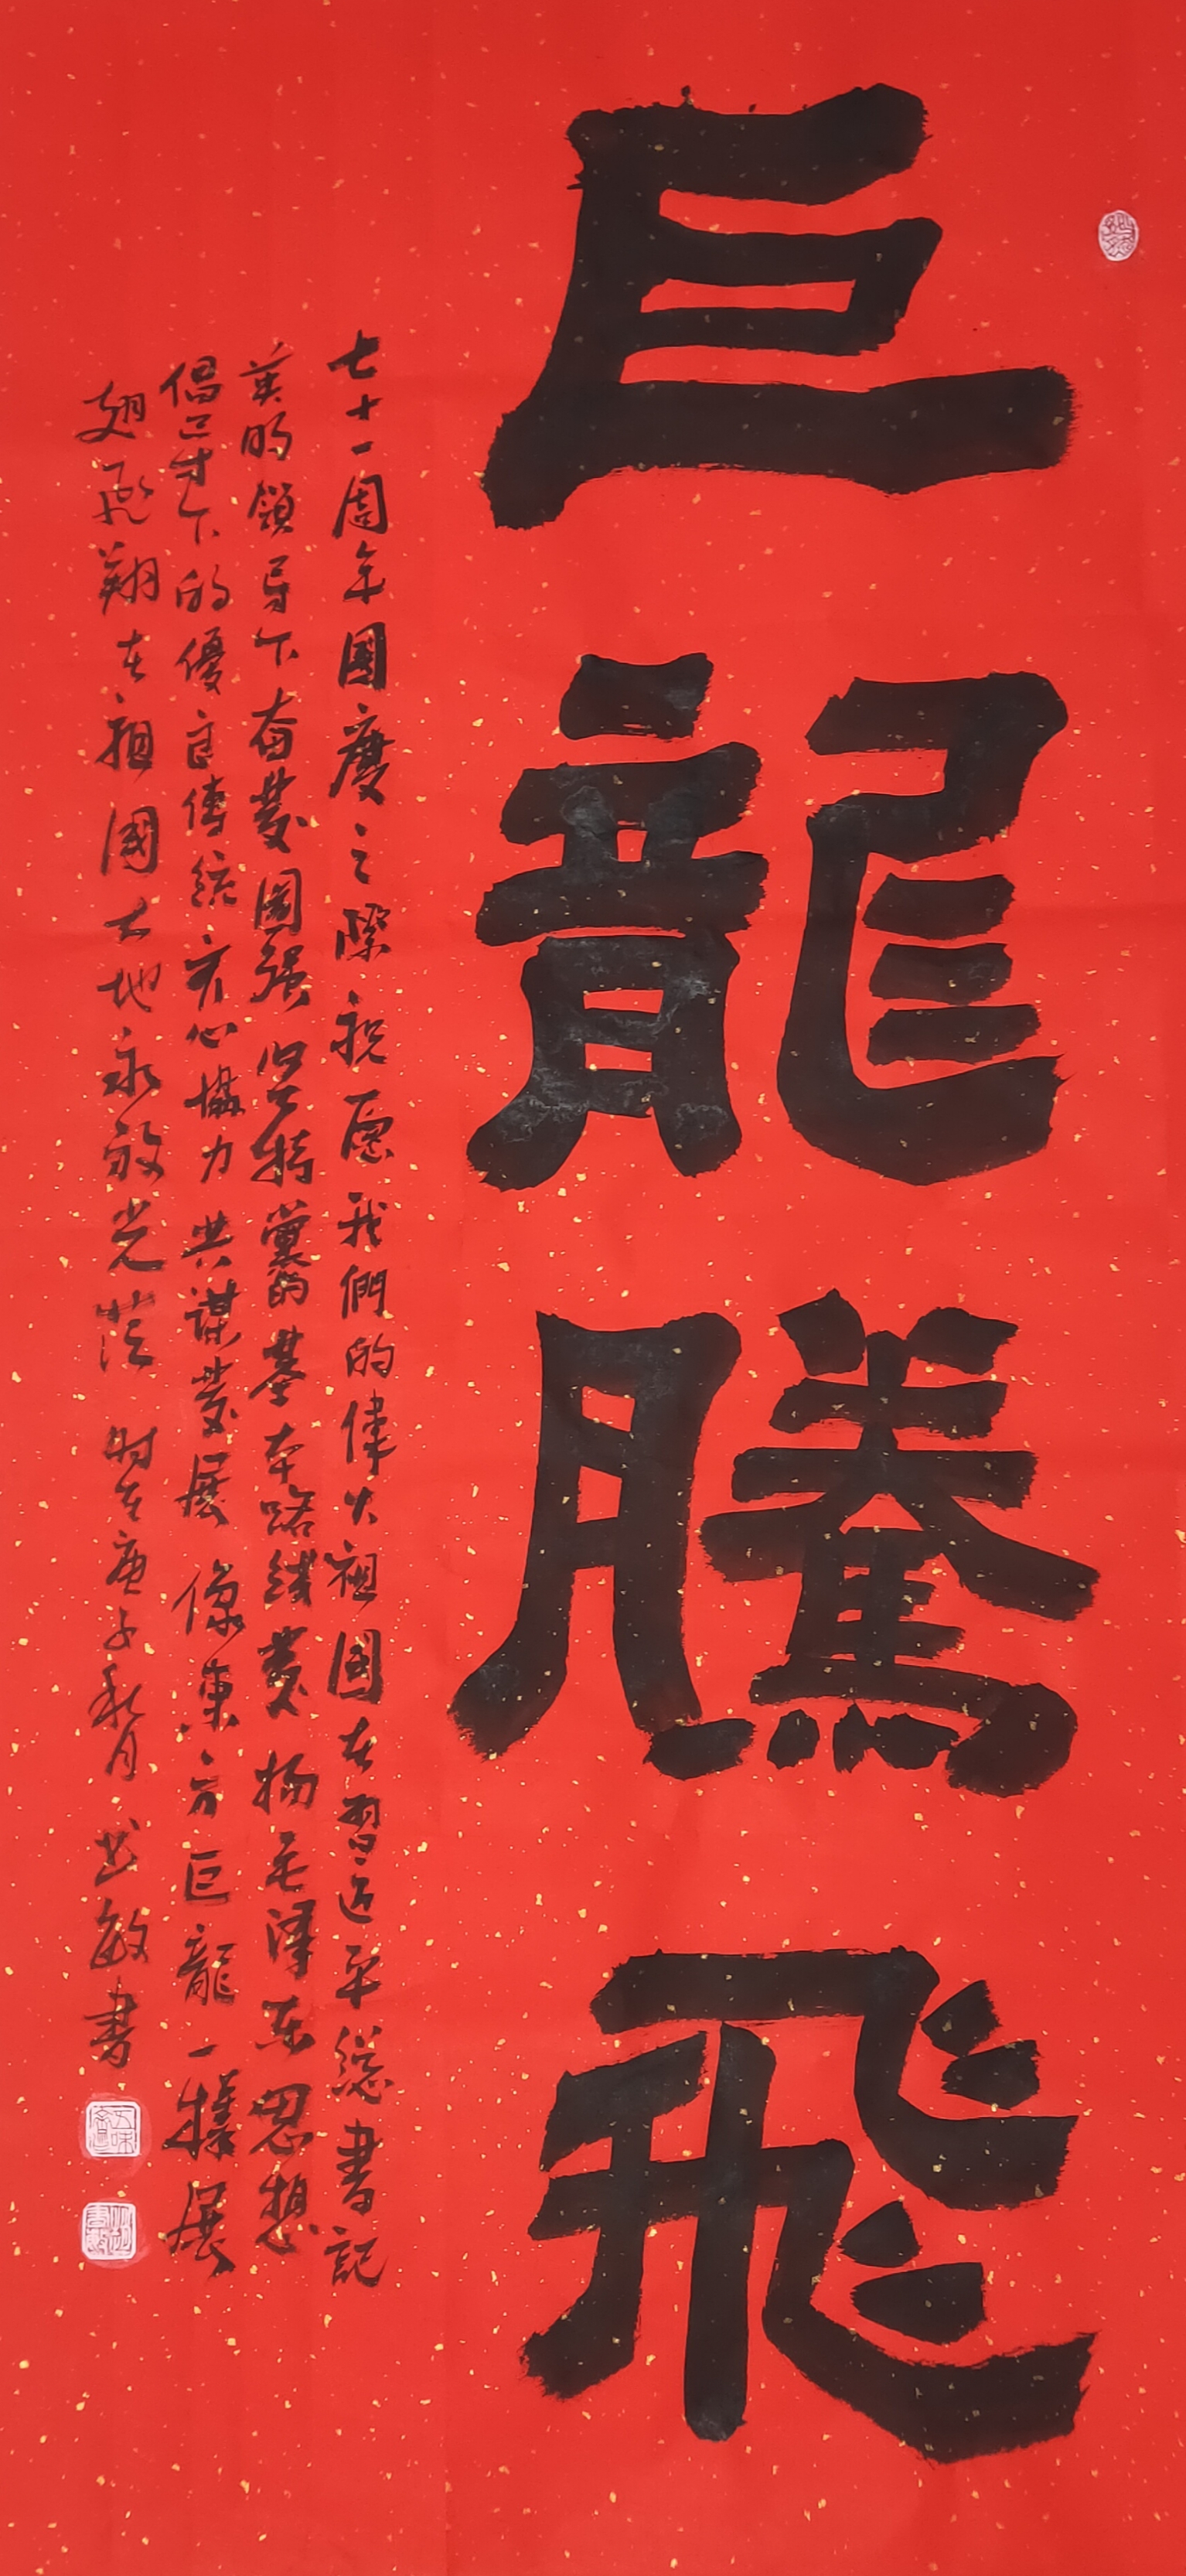 巨龍騰飛
七十一周年國慶之際祝愿我們的偉大祖國在習近平總書記
英明領导下奋發圖强坚持黨的基本路线發扬毛澤东思想
倡导下的優良传统齐心協力共謀發展像東方巨龍一樣展
翅飛翔在祖國大地永放光芒时在庚子秋月 敏書